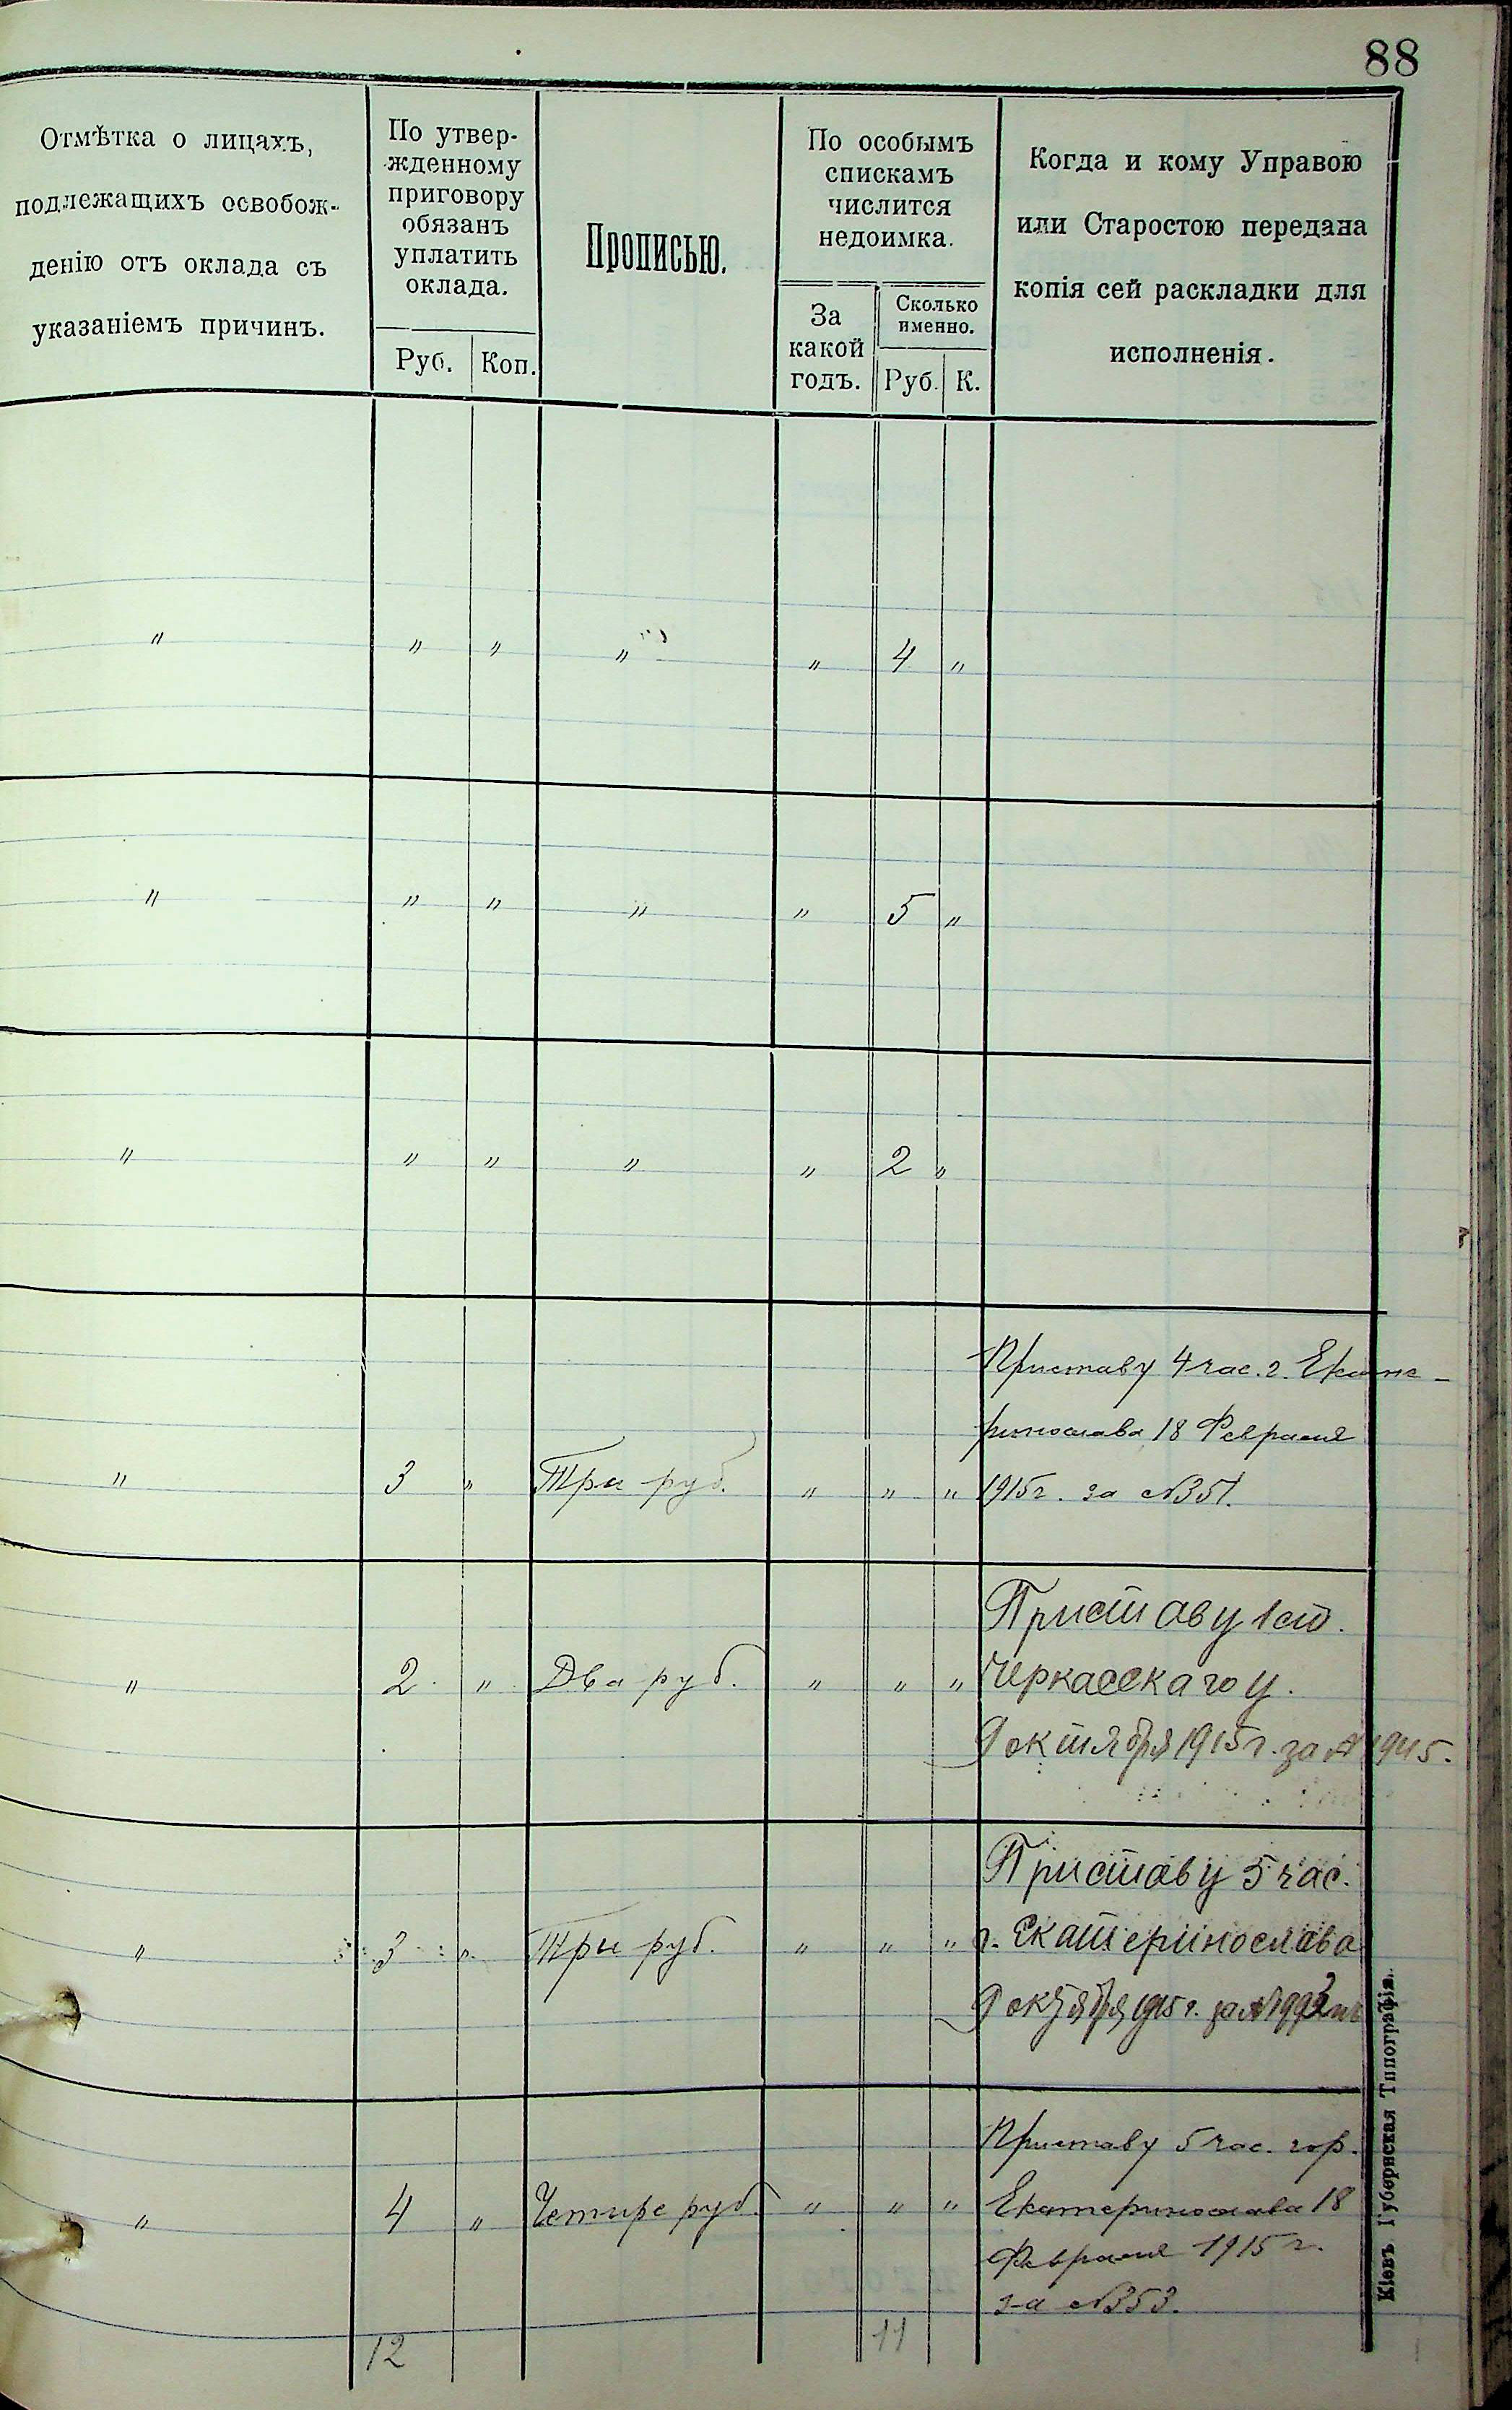 88
Отмѣтка о лицахъ,
подлежащихъ освобож-
денію отъ оклада съ
указаніемъ причинъ.
По утвер-
жденному
приговору
обязанъ
уплатить
оклада.
Руб. Коп.
Прописью.
По особымъ
спискамъ
числится
недоимка.
За
какой
годъ.
Сколько
именно.
Руб. К.
Когда и кому Управою
или Старостою передана
копія сей раскладки для
исполненія.
" " " " " 4 "
" " " " " 5 "
" " " " " 2 "
Приставу 4 час. г. Екате-
ринослава 18 Февраля
" 3 " Три руб. " " " 1915 г. за №351.
Приставу 1 ст.
" 2 " Два руб. " " " Черкасскаго у.
9 октября 1915 г. за № 1945.
Приставу 5 час.
" 3 " Три руб. " " " г. Екатеринослава
9 октября 1915 г.
Приставу 5 час. гор.
" 4 " Четыре руб. " " " Екатеринослава 18
Февраля 1915 г.
за №353.
12 11
Кіевъ Губернская Типографія.